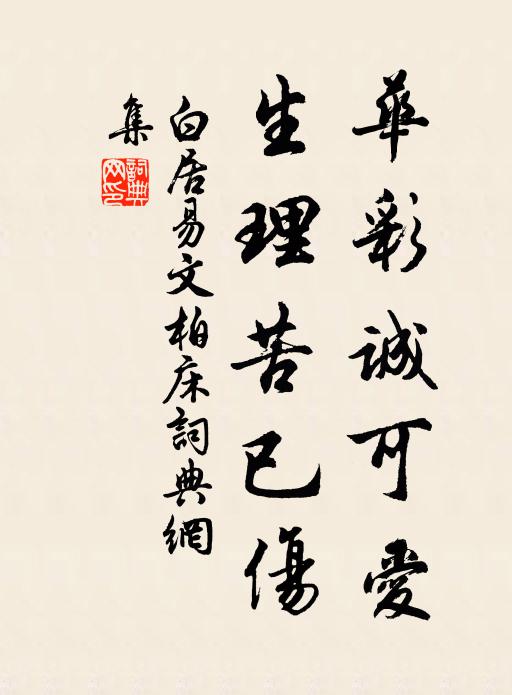 華彩誠可愛
生理苦已傷
白居易文柏床詞典網
集
詞典網印